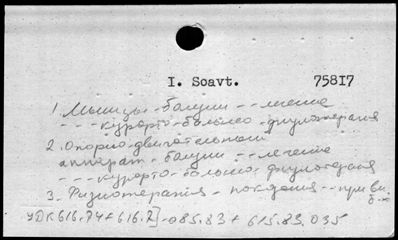 I. Soavt. 75817
1. Мышцы - болезни - - лечение
- - - курорто- бальнео- физиотерапия
2. Опорно-двигательный
аппарат - болезни - - лечение
- - - курорто- бальнео- физиотерапия
3. Физиотерапия - показания - - при
УДК 616.74+616.7]-085.83+615.83.035